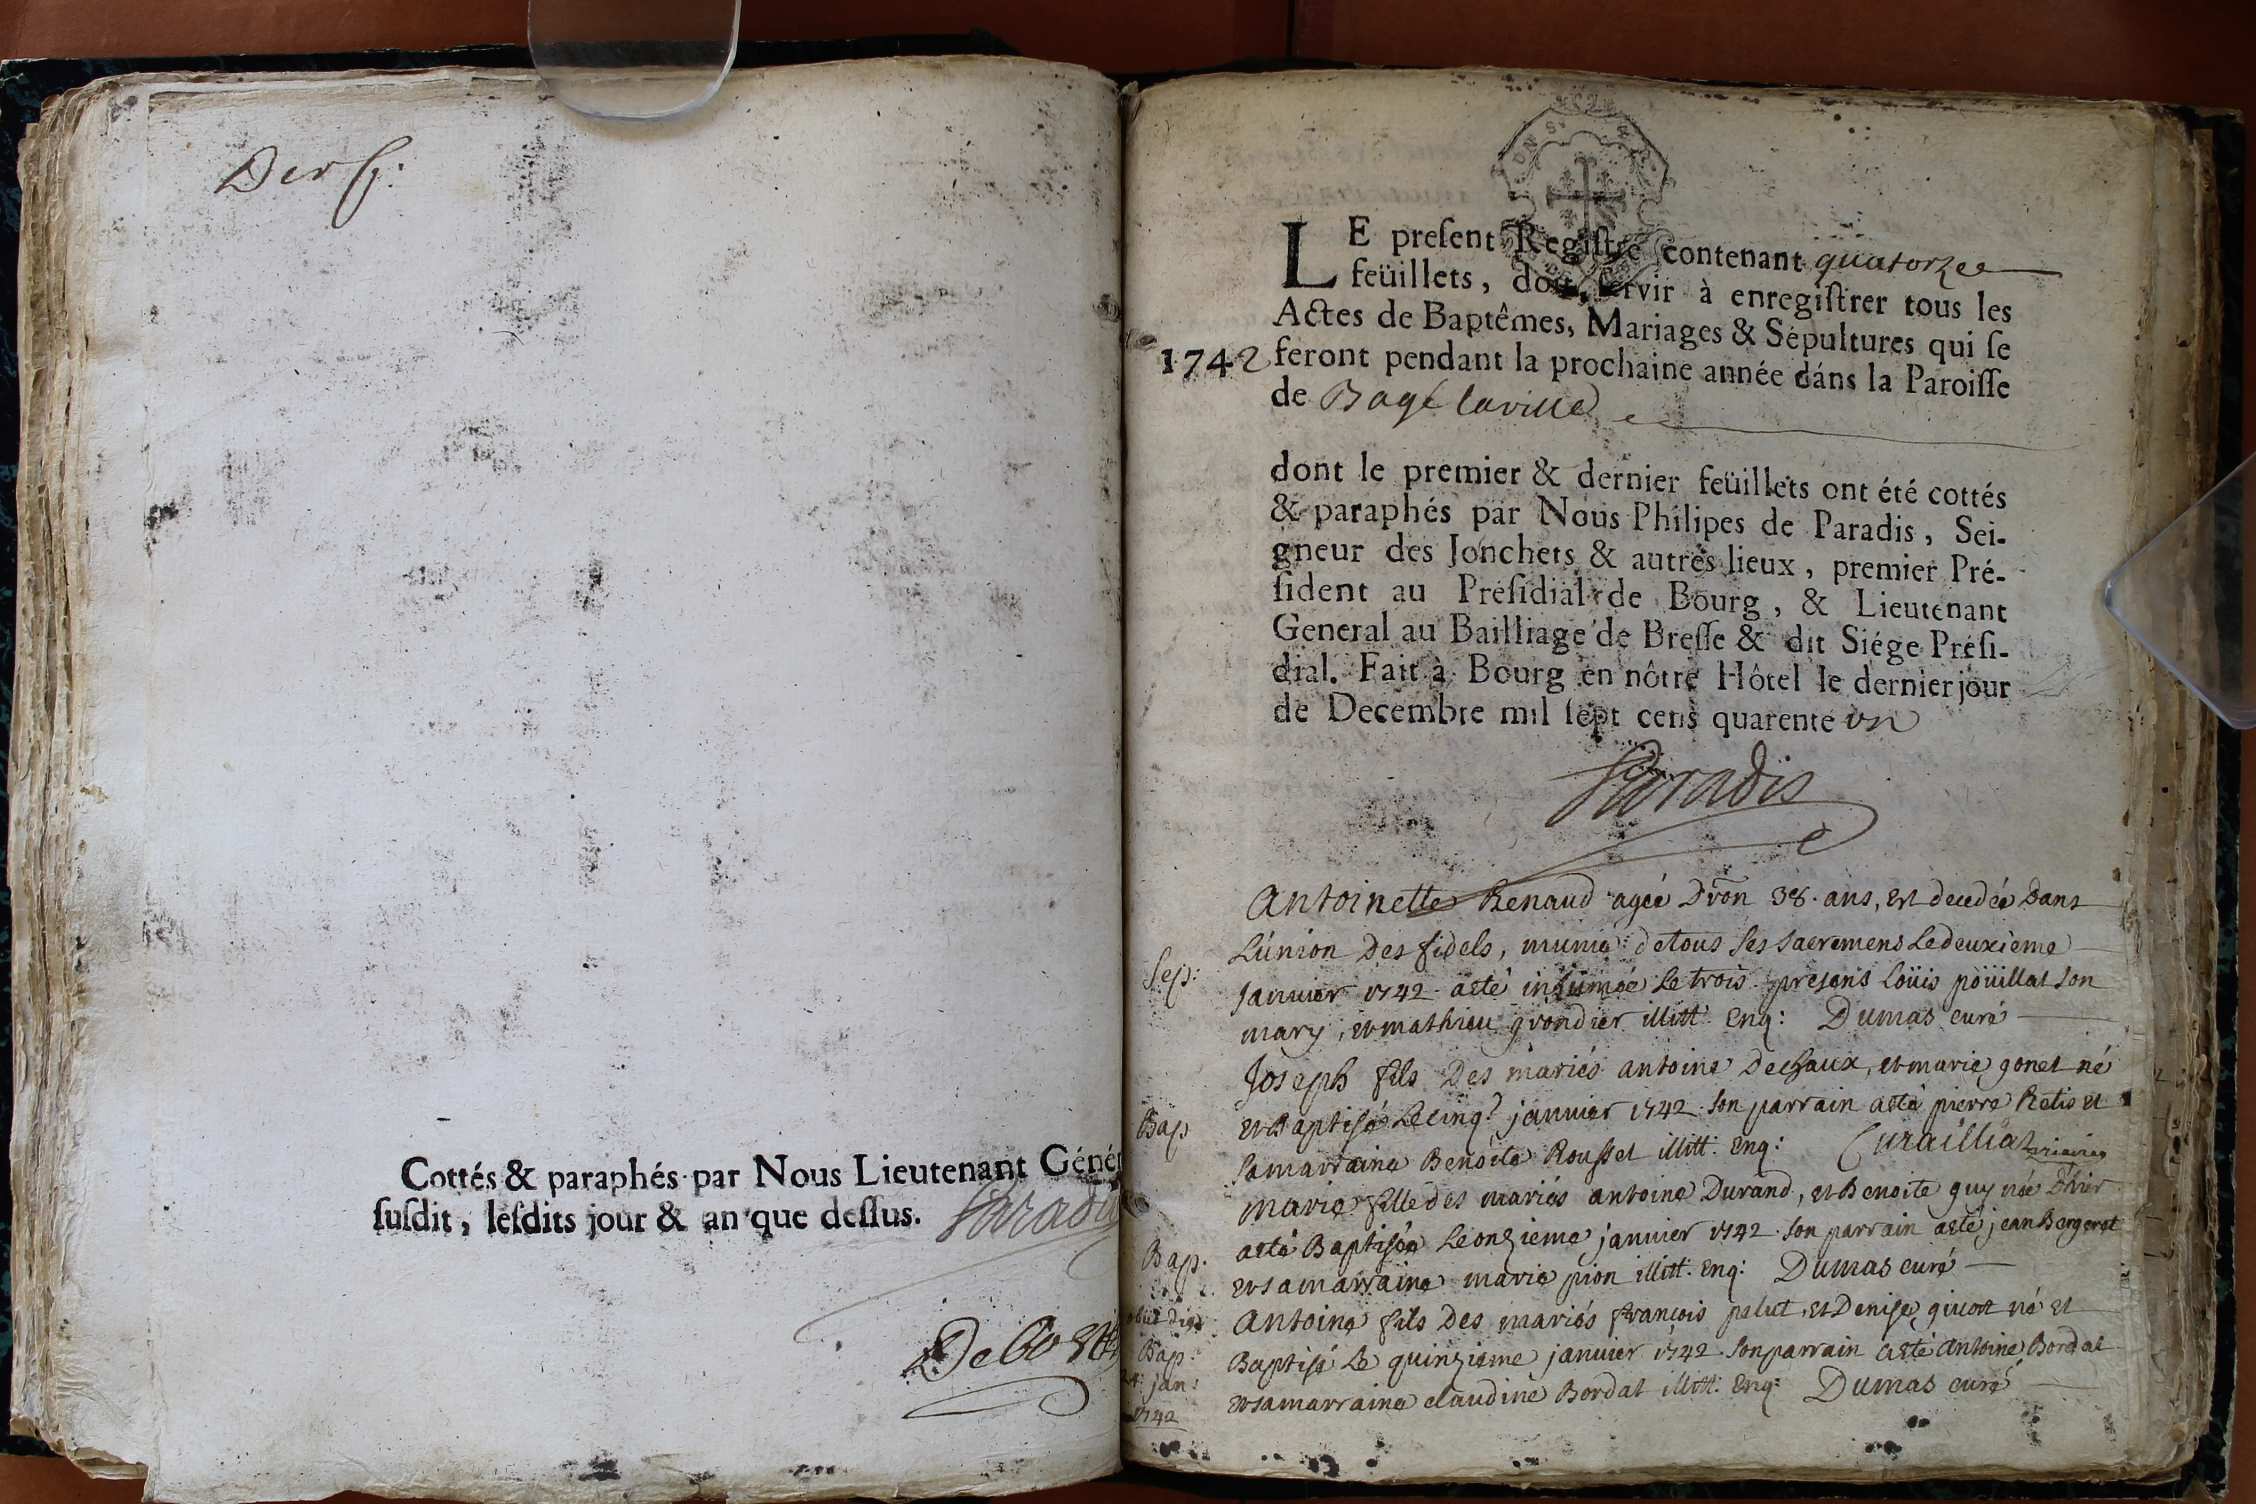 Der f:
Cottés & paraphés par Nous Lieutenant Géné
ſuſdit, leſdits jour & an que deſſus. Paradis
LE preſent Regiſtre contenant quatorze
feüillets, doit ſervir à enregiſtrer tous les
Actes de Baptêmes, Mariages & Sépultures qui ſe
1742 feront pendant la prochaine année dáns la Paroiſſe
de Bagé laville
dont le premier & dernier feüillets ont été cottés
& paraphés par Nous Philipes de Paradis, Sei-
gneur des Jonchets & autres lieux, premier Pré-
ſident au Préſidial de Bourg, & Lieutenant
General au Bailliage de Breſſe & dit Siége Préſi-
dial. Fait à Bourg en nôtre Hôtel le dernier jour
de Decembre mil ſept cens quarente un
Paradis
Antoinette Renaud agée Dvon 38. ans, est decedée Dans
L'union Des fidels, munie de tous ses sacremens Le deuxieme
Sep: Janvier 1742. a esté inhumée Le trois. presens Loüis poüillat son
mary, et mathieu grondier illitt. Enq: Dumas curé
Joseph fils Des mariés antoine Dechaux, et marie gonet né
Bap et Baptisé Le cinq? janvier 1742. son parrain a esté pierre Retis et
sa marraine Benoite Rousset illitt: Enq: Curaillat vicaire
marie fille des mariés antoine Durand, et Benoite guy née
Bap. a esté Baptisée Le onzieme janvier 1742. son parrain a esté jean Bergeret
et sa marraine marie pion illitt. Enq: Dumas curé
Antoine fils Des mariés françois palut, et Denise givort né et
Bap: Baptisé Le quinzieme janvier 1742. son parrain a esté antoine Bordat
24: jan: et sa marraine claudine Bordat illitt: Enq: Dumas curé
1742